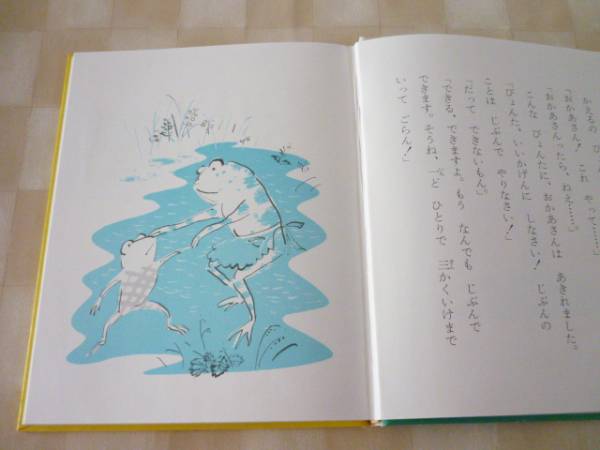 かえるの ぴ
「おかあさん！ これ やって……」
「おかあさんったら、ねえ……」
こんな ぴょんたに、おかあさんは あきれました。
「ぴょんた、いいかげんに しなさい！ じぶんの
ことは じぶんで やりなさい！」
「だって できないもん。」
「できる、できますよ。もう なんでも じぶんで
できます。そうね、一ど ひとりで 三かくいけまで
いって ごらん！」